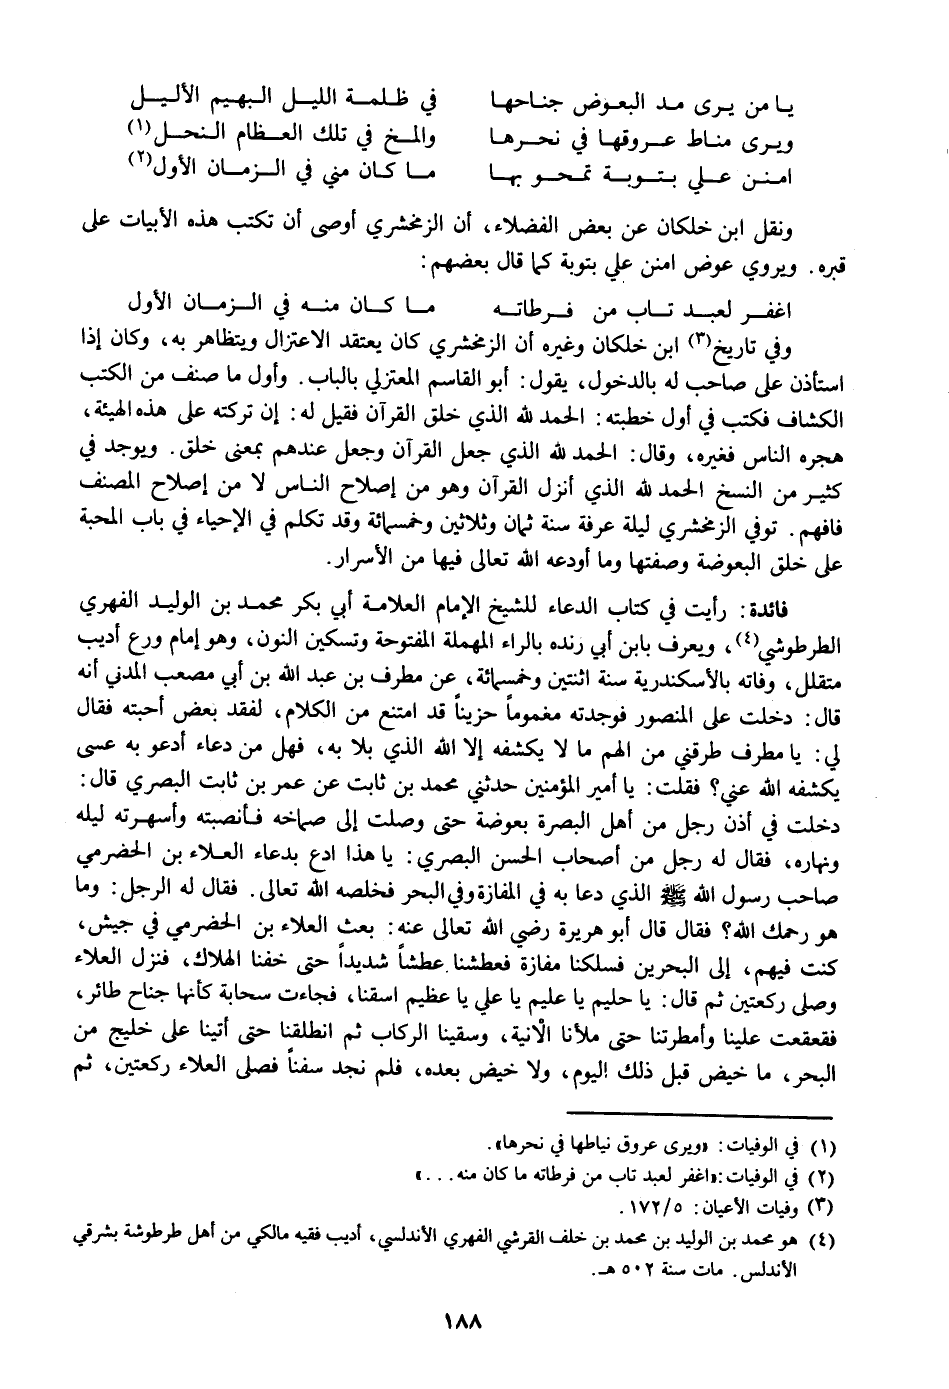 يا من يرى مد البعوض جناحها في ظلمة الليل البهيم الأليل
ويرى مناط عروقها في نحرها والمخ في تلك العظام النحل(١)
امنن علي بتوبة تمحو بها ما كان مني في الزمان الأول(٢)
ونقل ابن خلكان عن بعض الفضلاء، أن الزمخشري أوصى أن تكتب هذه الأبيات على
قبره. ويروي عوض امنن علي بتوبة كما قال بعضهم:
اغفر لعبد تاب من فرطاته ما كان منه في الزمان الأول
وفي تاريخ(٣) ابن خلكان وغيره أن الزمخشري كان يعتقد الاعتزال ويتظاهر به، وكان إذا
استأذن على صاحب له بالدخول، يقول: أبو القاسم المعتزلي بالباب. وأول ما صنف من الكتب
الكشاف فكتب في أول خطبته: الحمد لله الذي خلق القرآن فقيل له: إن تركته على هذه الهيئة،
هجره الناس فغيره، وقال: الحمد لله الذي جعل القرآن وجعل عندهم بمعنى خلق. ويوجد في
كثير من النسخ الحمد لله الذي أنزل القرآن وهو من إصلاح الناس لا من إصلاح المصنف
فافهم. توفي الزمخشري ليلة عرفة سنة ثمان وثلاثين وخمسمائة وقد تكلم في الإحياء في باب المحبة
على خلق البعوضة وصفتها وما أودعه الله تعالى فيها من الأسرار.
فائدة: رأيت في كتاب الدعاء للشيخ الإمام العلامة أبي بكر محمد بن الوليد الفهري
الطرطوشي(٤)، ويعرف بابن أبي رنده بالراء المهملة المفتوحة وتسكين النون، وهو إمام ورع أديب
متقلل، وفاته بالأسكندرية سنة اثنتين وخمسمائة، عن مطرف بن عبد الله بن أبي مصعب المدني أنه
قال: دخلت على المنصور فوجدته مغموماً حزيناً قد امتنع من الكلام، لفقد بعض أحبته فقال
لي: يا مطرف طرقني من الهم ما لا يكشفه إلا الله الذي بلا به، فهل من دعاء أدعو به عسى
يكشفه الله عني؟ فقلت: يا أمير المؤمنين حدثني محمد بن ثابت عن عمر بن ثابت البصري قال:
دخلت في أذن رجل من أهل البصرة بعوضة حتى وصلت إلى صماخه فأنصبته وأسهرته ليله
ونهاره، فقال له رجل من أصحاب الحسن البصري: يا هذا ادع بدعاء العلاء بن الحضرمي
صاحب رسول الله ﷺ الذي دعا به في المفازة وفي البحر فخلصه الله تعالى. فقال له الرجل: وما
هو رحمك الله؟ فقال قال أبو هريرة رضي الله تعالى عنه: بعث العلاء بن الحضرمي في جيش،
كنت فيهم، إلى البحرين فسلكنا مفازة فعطشنا عطشاً شديداً حتى خفنا الهلاك، فنزل العلاء
وصلى ركعتين ثم قال: يا حليم يا عليم يا علي يا عظيم اسقنا، فجاءت سحابة كأنها جناح طائر،
فقعقعت علينا وأمطرتنا حتى ملأنا الآنية، وسقينا الركاب ثم انطلقنا حتى أتينا على خليج من
البحر، ما خيض قبل ذلك اليوم، ولا خيض بعده، فلم نجد سفناً فصلى العلاء ركعتين، ثم
(١) في الوفيات: «ويرى عروق نياطها في نحرها».
(٢) في الوفيات: «اغفر لعبد تاب من فرطاته ما كان منه...»
(٣) وفيات الأعيان: ١٧٢/٥.
(٤) هو محمد بن الوليد بن محمد بن خلف القرشي الفهري الأندلسي، أديب فقيه مالكي من أهل طرطوشة بشرقي
الأندلس. مات سنة ٥٠٢ هـ.
١٨٨